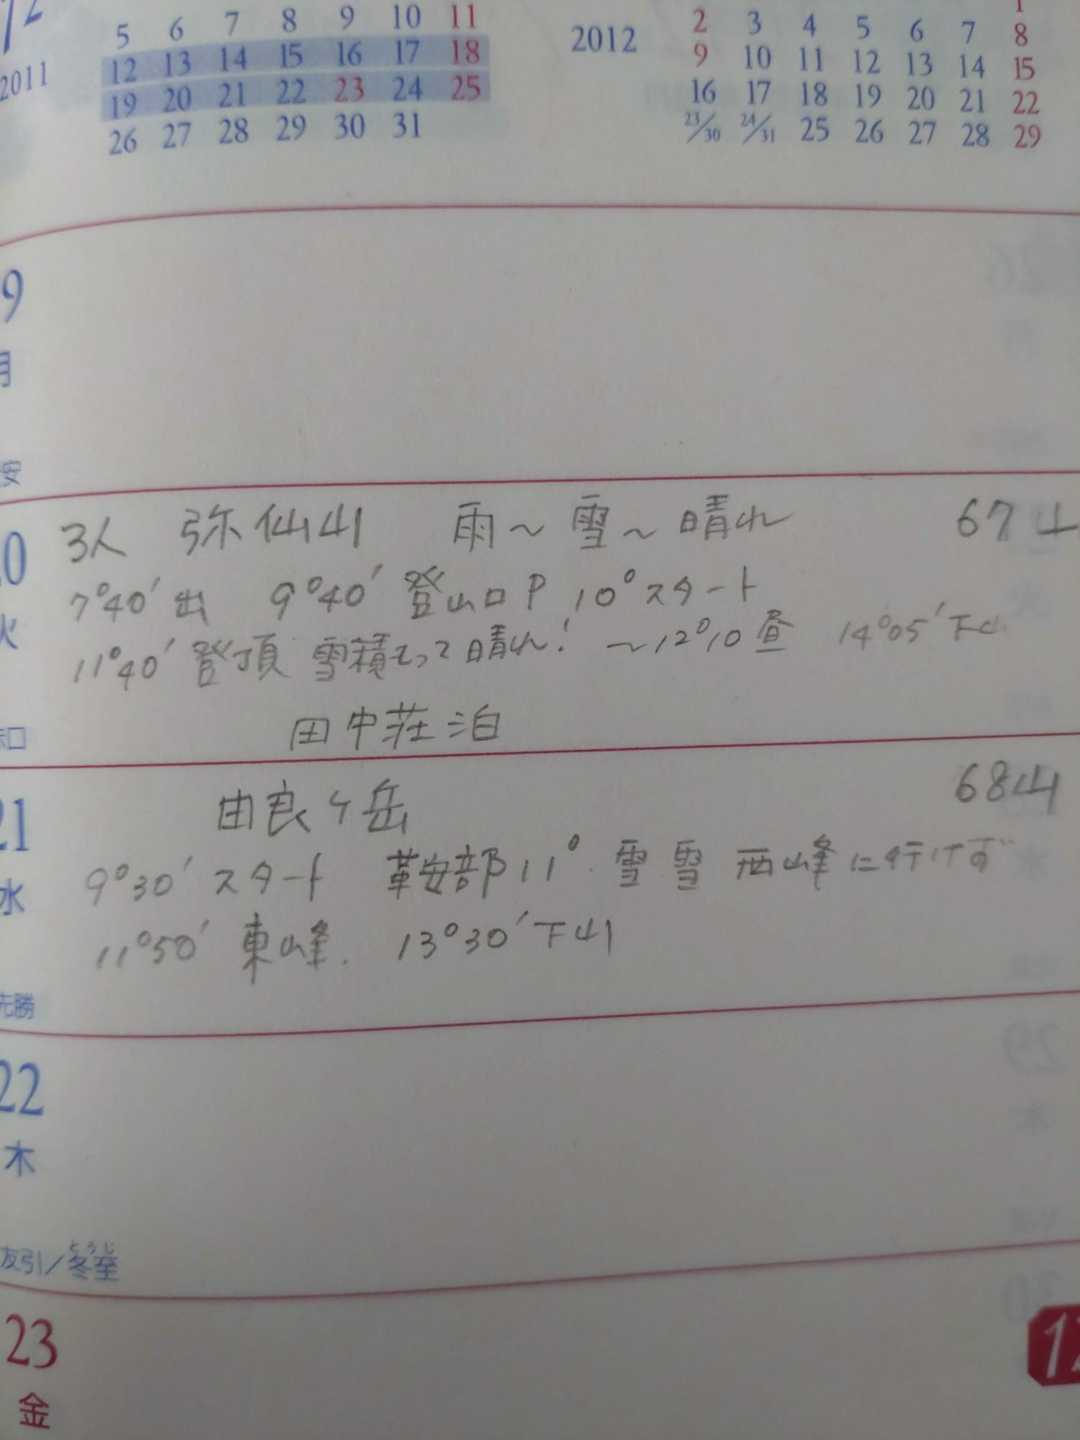 12
2011
5 6 7 8 9 10 11
12 13 14 15 16 17 18
19 20 21 22 23 24 25
26 27 28 29 30 31
2012
1
2 3 4 5 6 7 8
9 10 11 12 13 14 15
16 17 18 19 20 21 22
23/30 24/31 25 26 27 28 29
9
月
安
3人 弥仙山 雨〜雪〜晴れ 67山
0
火
7°40′出 9°40′登山口P 10°スタート
11°40′登頂 雪積もって晴れ! 〜12°10昼 14°05′下山
田中荘泊
口
21
水
由良ケ岳 68山
9°30′スタート 鞍部11° 雪雪 西峰に行けず
11°50′東峰. 13°30′下山
先勝
22
木
友引/冬至
とうじ
23
金
12